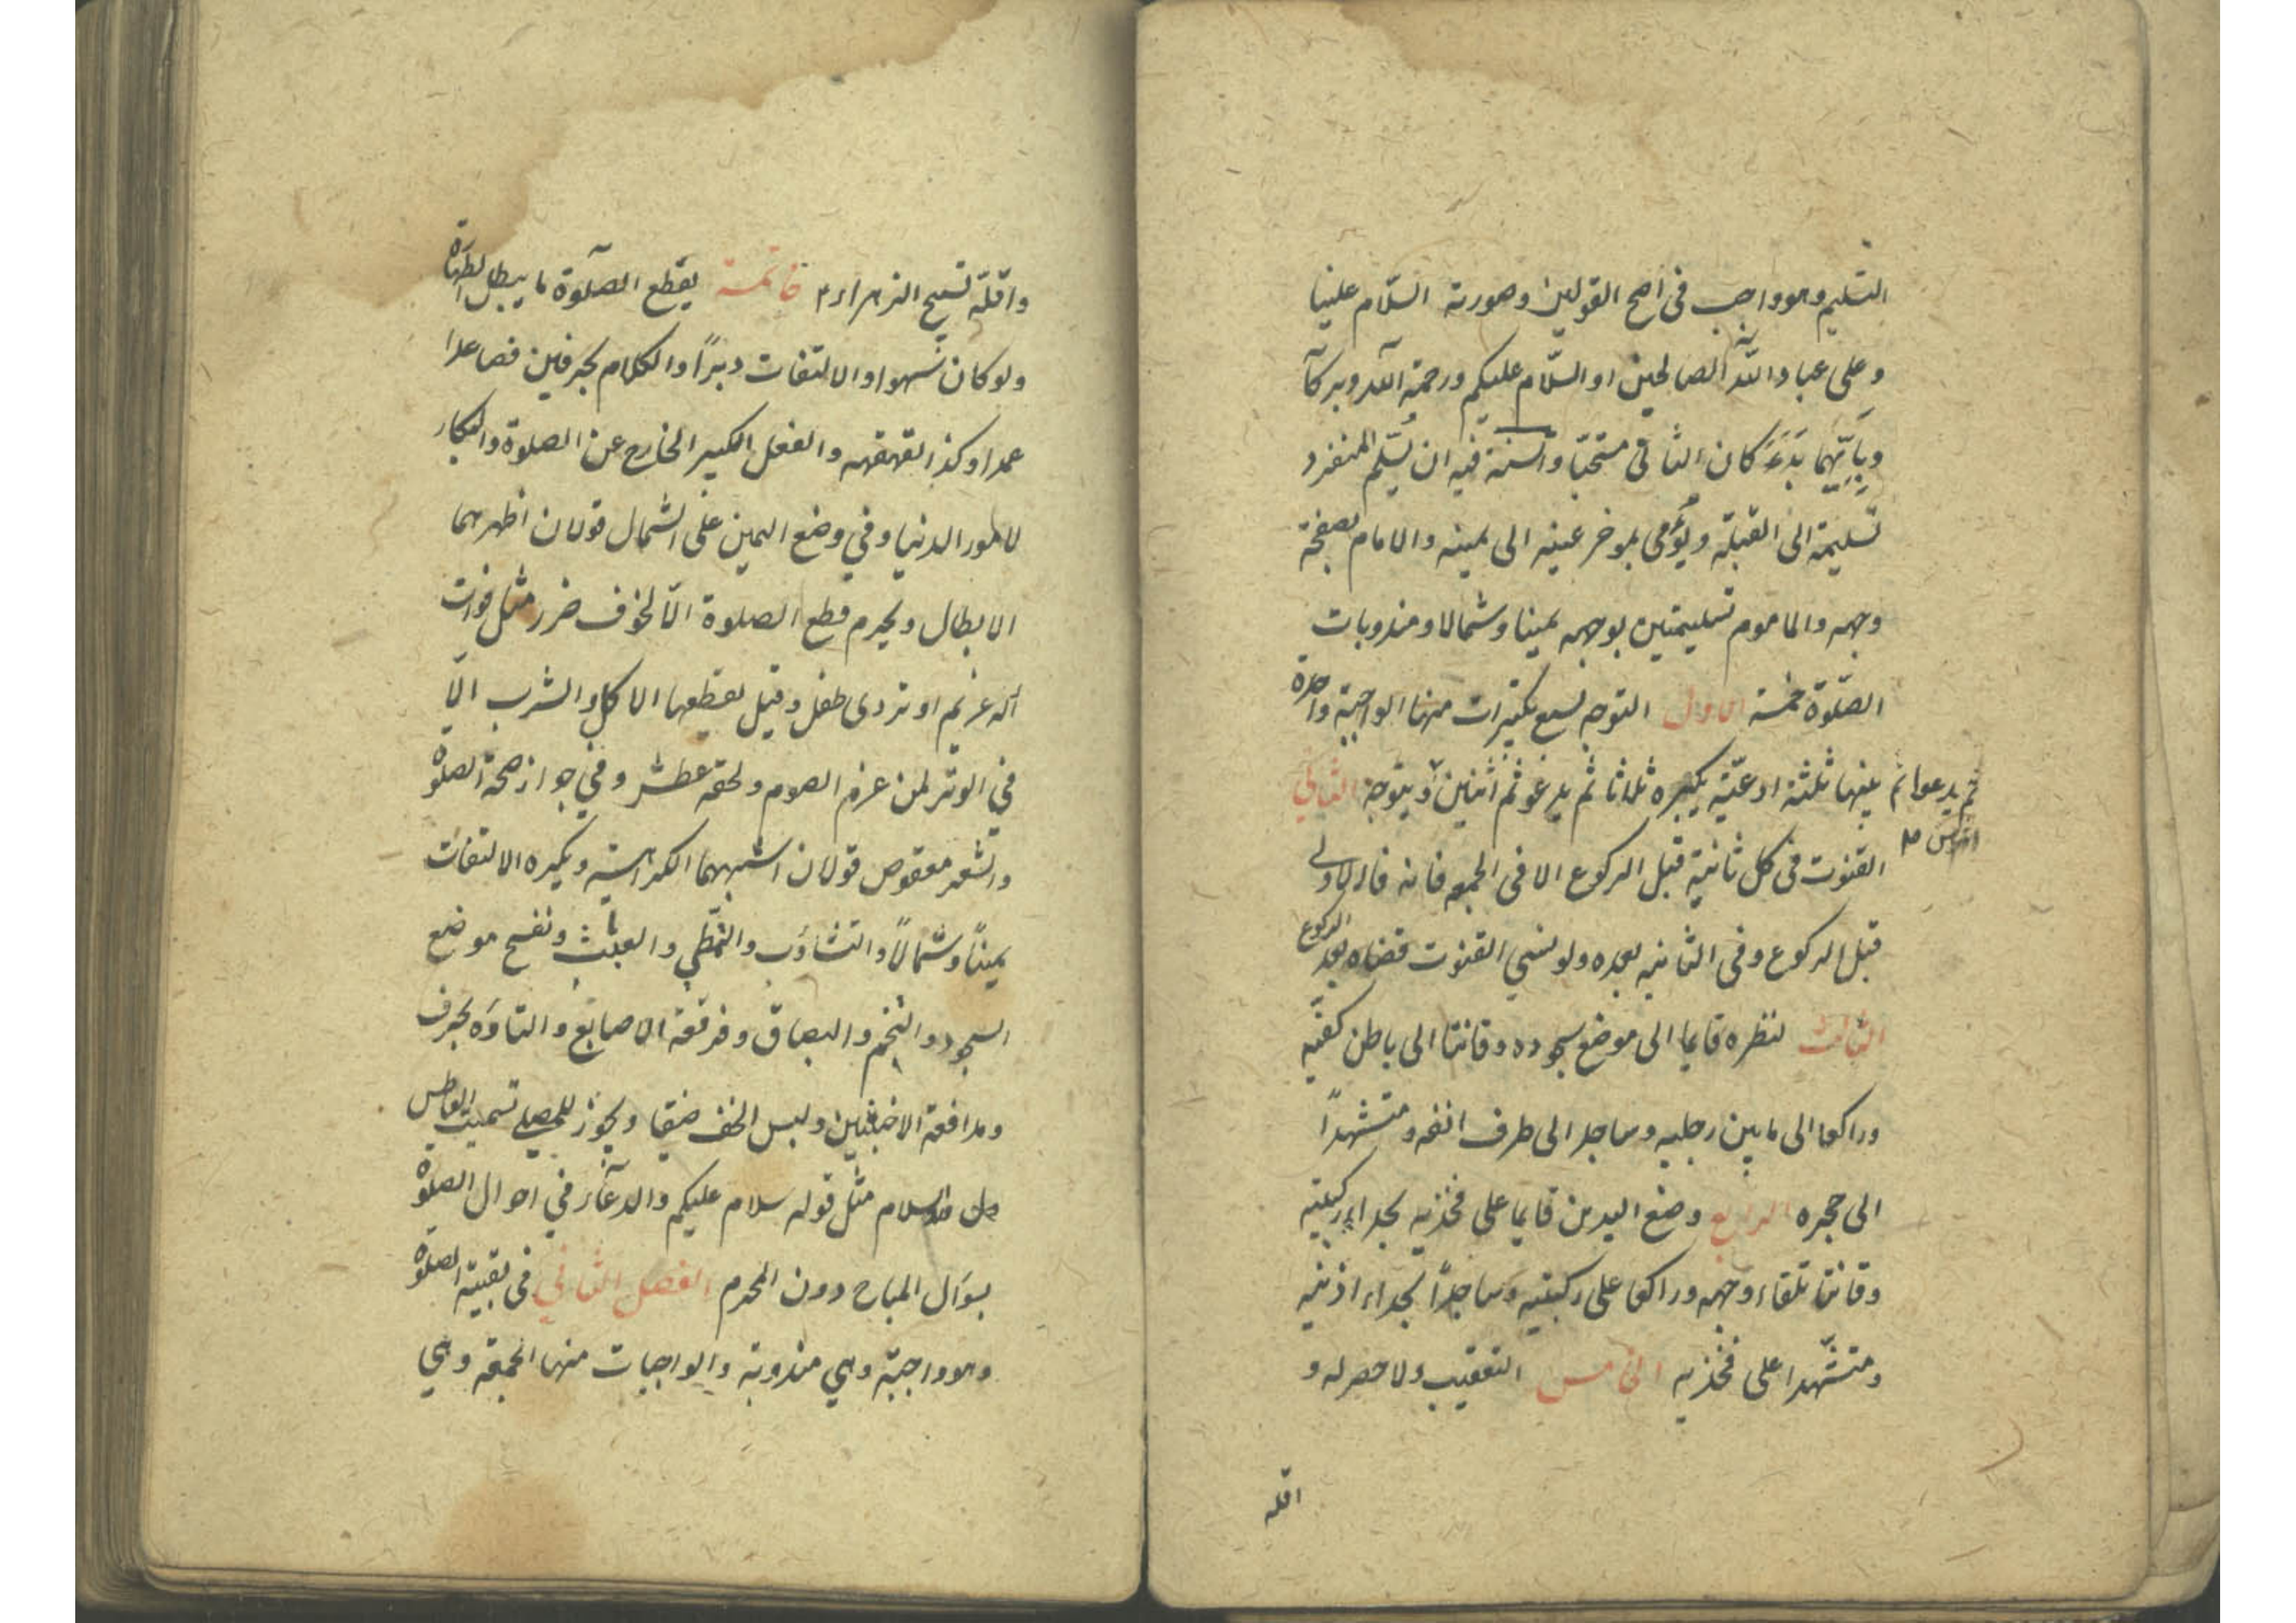 التسليم وهو واجب فى اصح القولين وصورته السّلام علينا
وعلى عباد الله الصالحين او السّلام عليكم ورحمة الله وبركاته
وبايّهما بدء كان الثانى مستحبّا والسنة فيه ان يسلّم المنفرد
تسليمة الى القبلة ويؤمى بموخر عينه الى يمينه والامام بصفحة
وجهه والماموم تسليمتين بوجهه يمينا وشمالا ومندوبات
الصّلوة خمسة الاول التوجه بسبع تكبيرات منها الواجبة واحدة
بينها ثلثة ادعيّة يكبره ثلاثا ثم يدعو ثم اثنين ويتوجه الثانى
ثم يدعوا ثم
القنوت فى كل ثانية قبل الركوع الا فى الجمعه فانه فى الاولى
قبل الركوع وفى الثانيه بعده ولو نسي القنوت قضاه بعد الركوع
الثالث نظره قايما الى موضع سجوده وقانتا الى باطن كفيّه
وراكعا الى مابين رجليه وساجدا الى طرف انفه ومتشهدًا
الى حجره الرابع وضع اليدين قايما على فخذيه بحداء ركبتيه
وقانتا تلقاء وجهه وراكعا على ركبتيه وساجدًا بحداء اذنيه
ومتشّهدا على فخذيه الخامس التعقيب ولا حصر له و
اقله
واقلّه تسبيح الزهراء ع خاتمة يقطع الصلوة ما يبطل الطهارة
ولو كان سهوا والالتفات دبرًا والكلام بحرفين فصاعدا
عمدا وكذا القهقهه والفعل الكثير الخارج عن الصلوة والبكاء
لامور الدنيا وفي وضع اليمين على الشمال قولان اظهرهما
الابطال ويحرم قطع الصلوة الّا لخوف ضرر مثل فوات
غريم او تردى طفل وقيل يقطعها الاكل والشرب الّا
في الوتر لمن عزم الصوم ولحقه عطش وفي جواز صحة الصلوة
والشعر معقوص قولان اشبههما الكراهية ويكره الالتفات
يمينًا وشمالًا والتثاؤب والتمطّي والعبث ونفخ موضع
السجود والتنخم والبصاق وفرقعة الاصابع والتاوّه بحرف
ومدافعة الاخبثين ولبس الخف ضيقا ويجوز للمصلي تسميت العاطس
السلام مثل قوله سلام عليكم والدعاء في احوال الصلوة
بسؤال المباح دون المحرم الفصل الثاني فى بقية الصلوة
وهو واجبّة وهي مندوبة والواجبات منها الجمعة وهي